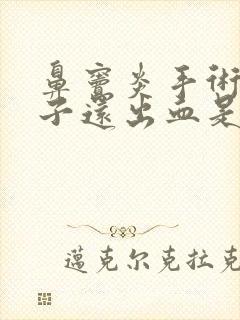 鼻竇炎手術
子還出血是
邁克尔克拉克